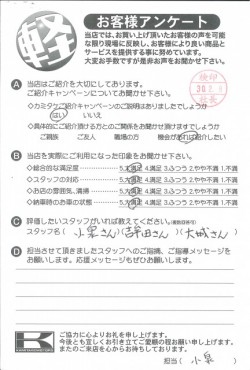 軽
お客様アンケート
当店では、お買い上げ頂いたお客様の声を可能
な限り現場に反映し、お客様により良い商品と
サービスを提供する事に努めています。
大変お手数ですが是非お声をお聞かせ下さい。
検印
店長
A 当店はご紹介を大切にしております。
ご紹介キャンペーンについてお聞かせ下さい
◇カミタケご紹介キャンペーンのご説明はありましたでしょうか
はい いいえ
◇具体的にご紹介頂ける方とのご関係をお聞かせ下さいますでしょうか
ご親族 ご友人 職場の方 機会があれば紹介したい
B 当店を実際にご利用になった印象をお聞かせ下さい。
◇総合的な満足度 5.大満足 4.満足 3.ふつう 2.やや不満 1.不満
◇スタッフの対応 5.大満足 4.満足 3.ふつう 2.やや不満 1.不満
◇お店の雰囲気、清掃 5.大満足 4.満足 3.ふつう 2.やや不満 1.不満
◇納車時のお車の状態 5.大満足 4.満足 3.ふつう 2.やや不満 1.不満
C 評価したいスタッフがいれば教えてください。(複数回答可)
スタッフ名( 小泉さん 辞田さん 大城さん )
D 担当させて頂きましたスタッフへのご指摘、ご指導メッセージを
お願いします。応援メッセージもぜひお願いします。
K
ご協力に心よりお礼を申し上げます。
今後とも宜しくお引き立てご愛顧の程お願い申し上げます。
またのご来店を心からお待ちしております。
担当( 小泉 )